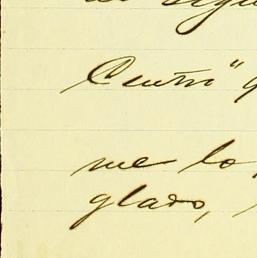 Centro" q
me lo
glado,